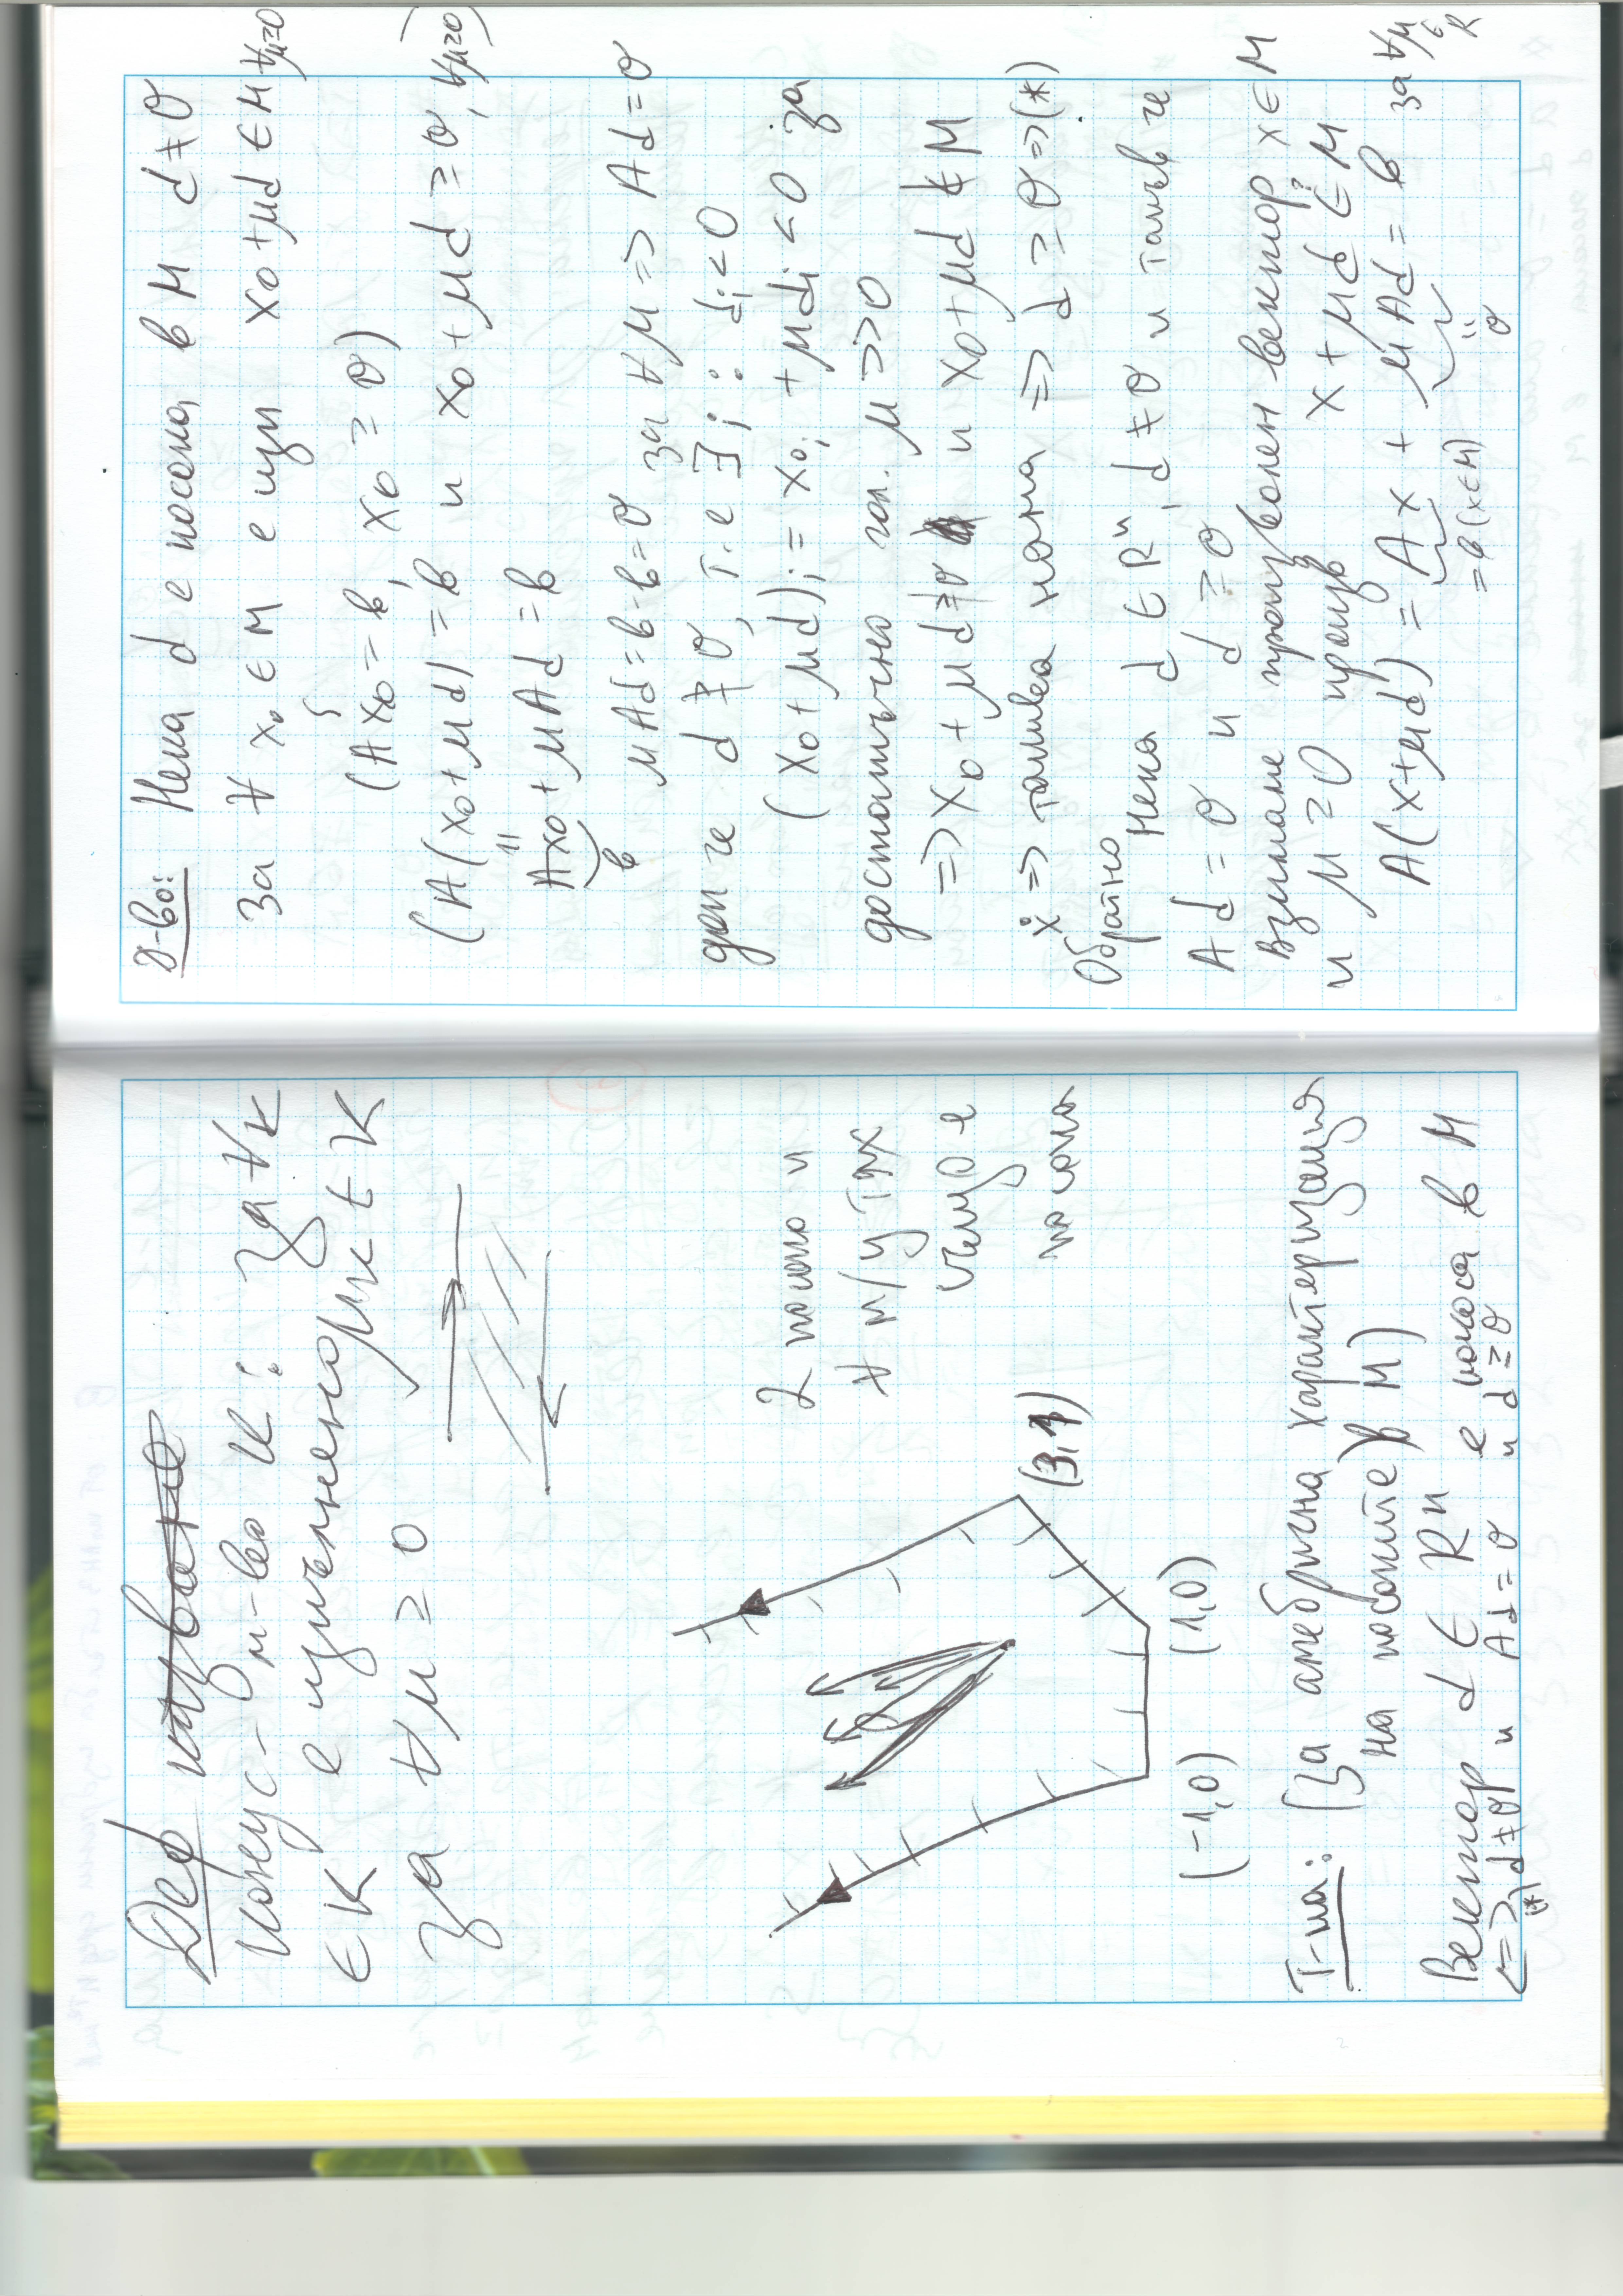 Деф
Конус - m-во K: за ∀k
∈ K е изпълнено μk ∈ K
за ∀μ ≥ 0
2 посоки и
∀ м/у тях
също е
посока
(-1,0) (1,0) (3,1)
Т-ма: (За алгебрична характеризация
на посоките в M)
Вектор d ∈ Rⁿ е посока в M
<=> d ≠ 0 и Ad = 0 и d ≥ 0
(*)
Д-во: Нека d е посока в M d ≠ 0
За ∀ x₀ ∈ M е изп x₀ + μd ∈ M ∀μ≥0
(Ax₀ = b, x₀ ≥ 0)
(A(x₀ + μd) = b и x₀ + μd ≥ 0, ∀μ≥0)
Ax₀ + μAd = b
b
μAd = b - b = 0 за ∀μ => Ad = 0
доп че d ≱ 0, т.е ∃ i : dᵢ < 0
(x₀ + μd)ᵢ = x₀ᵢ + μdᵢ < 0 за
достатъчно гол. μ >> 0
=> x₀ + μd ≱ 0 и x₀ + μd ∉ M
=> такива няма => d ≥ 0 => (*)
Обратно
Нека d ∈ Rⁿ, d ≠ 0 и такъв че
Ad = 0 и d ≥ 0
Взимаме произволен вектор x ∈ M
и μ ≥ 0 произв x + μd ∈? M
A(x + μd) = Ax + μAd = b за ∀μ ∈ R
= b (x ∈ M) = 0